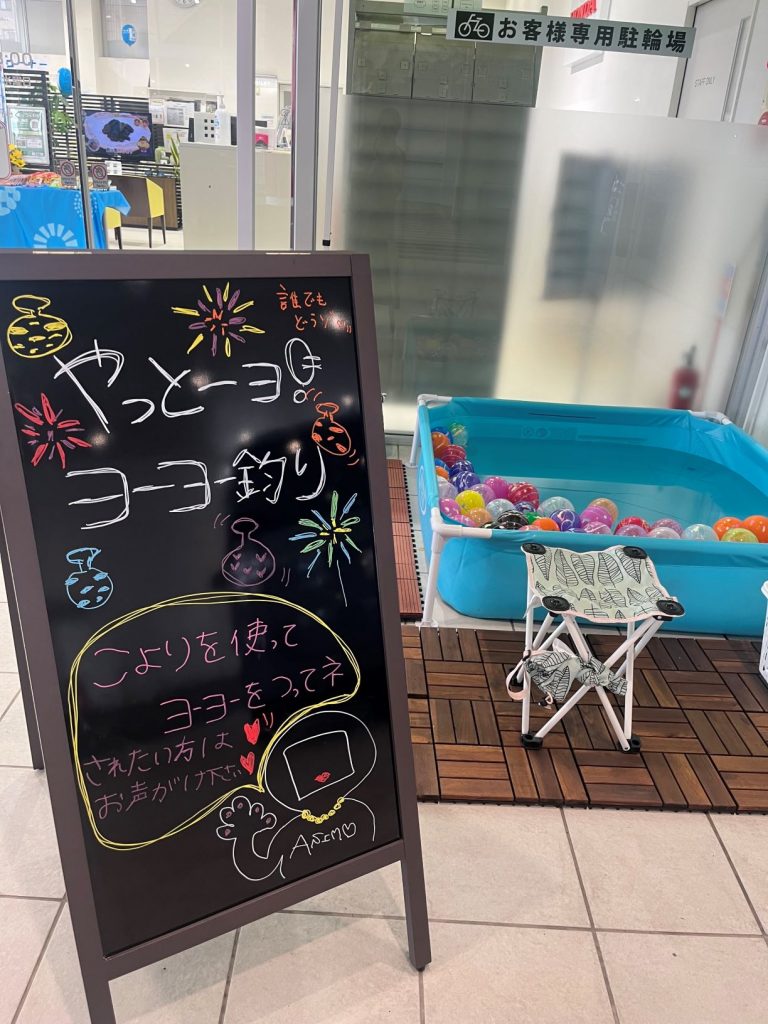 お客様専用駐輪場
STAFF ONLY
誰でも
どうぞ
やっとーヨ!
ヨーヨー釣り
こよりを使って
ヨーヨーをつってネ
されたい方は
お声がけ下さい
ANIMO